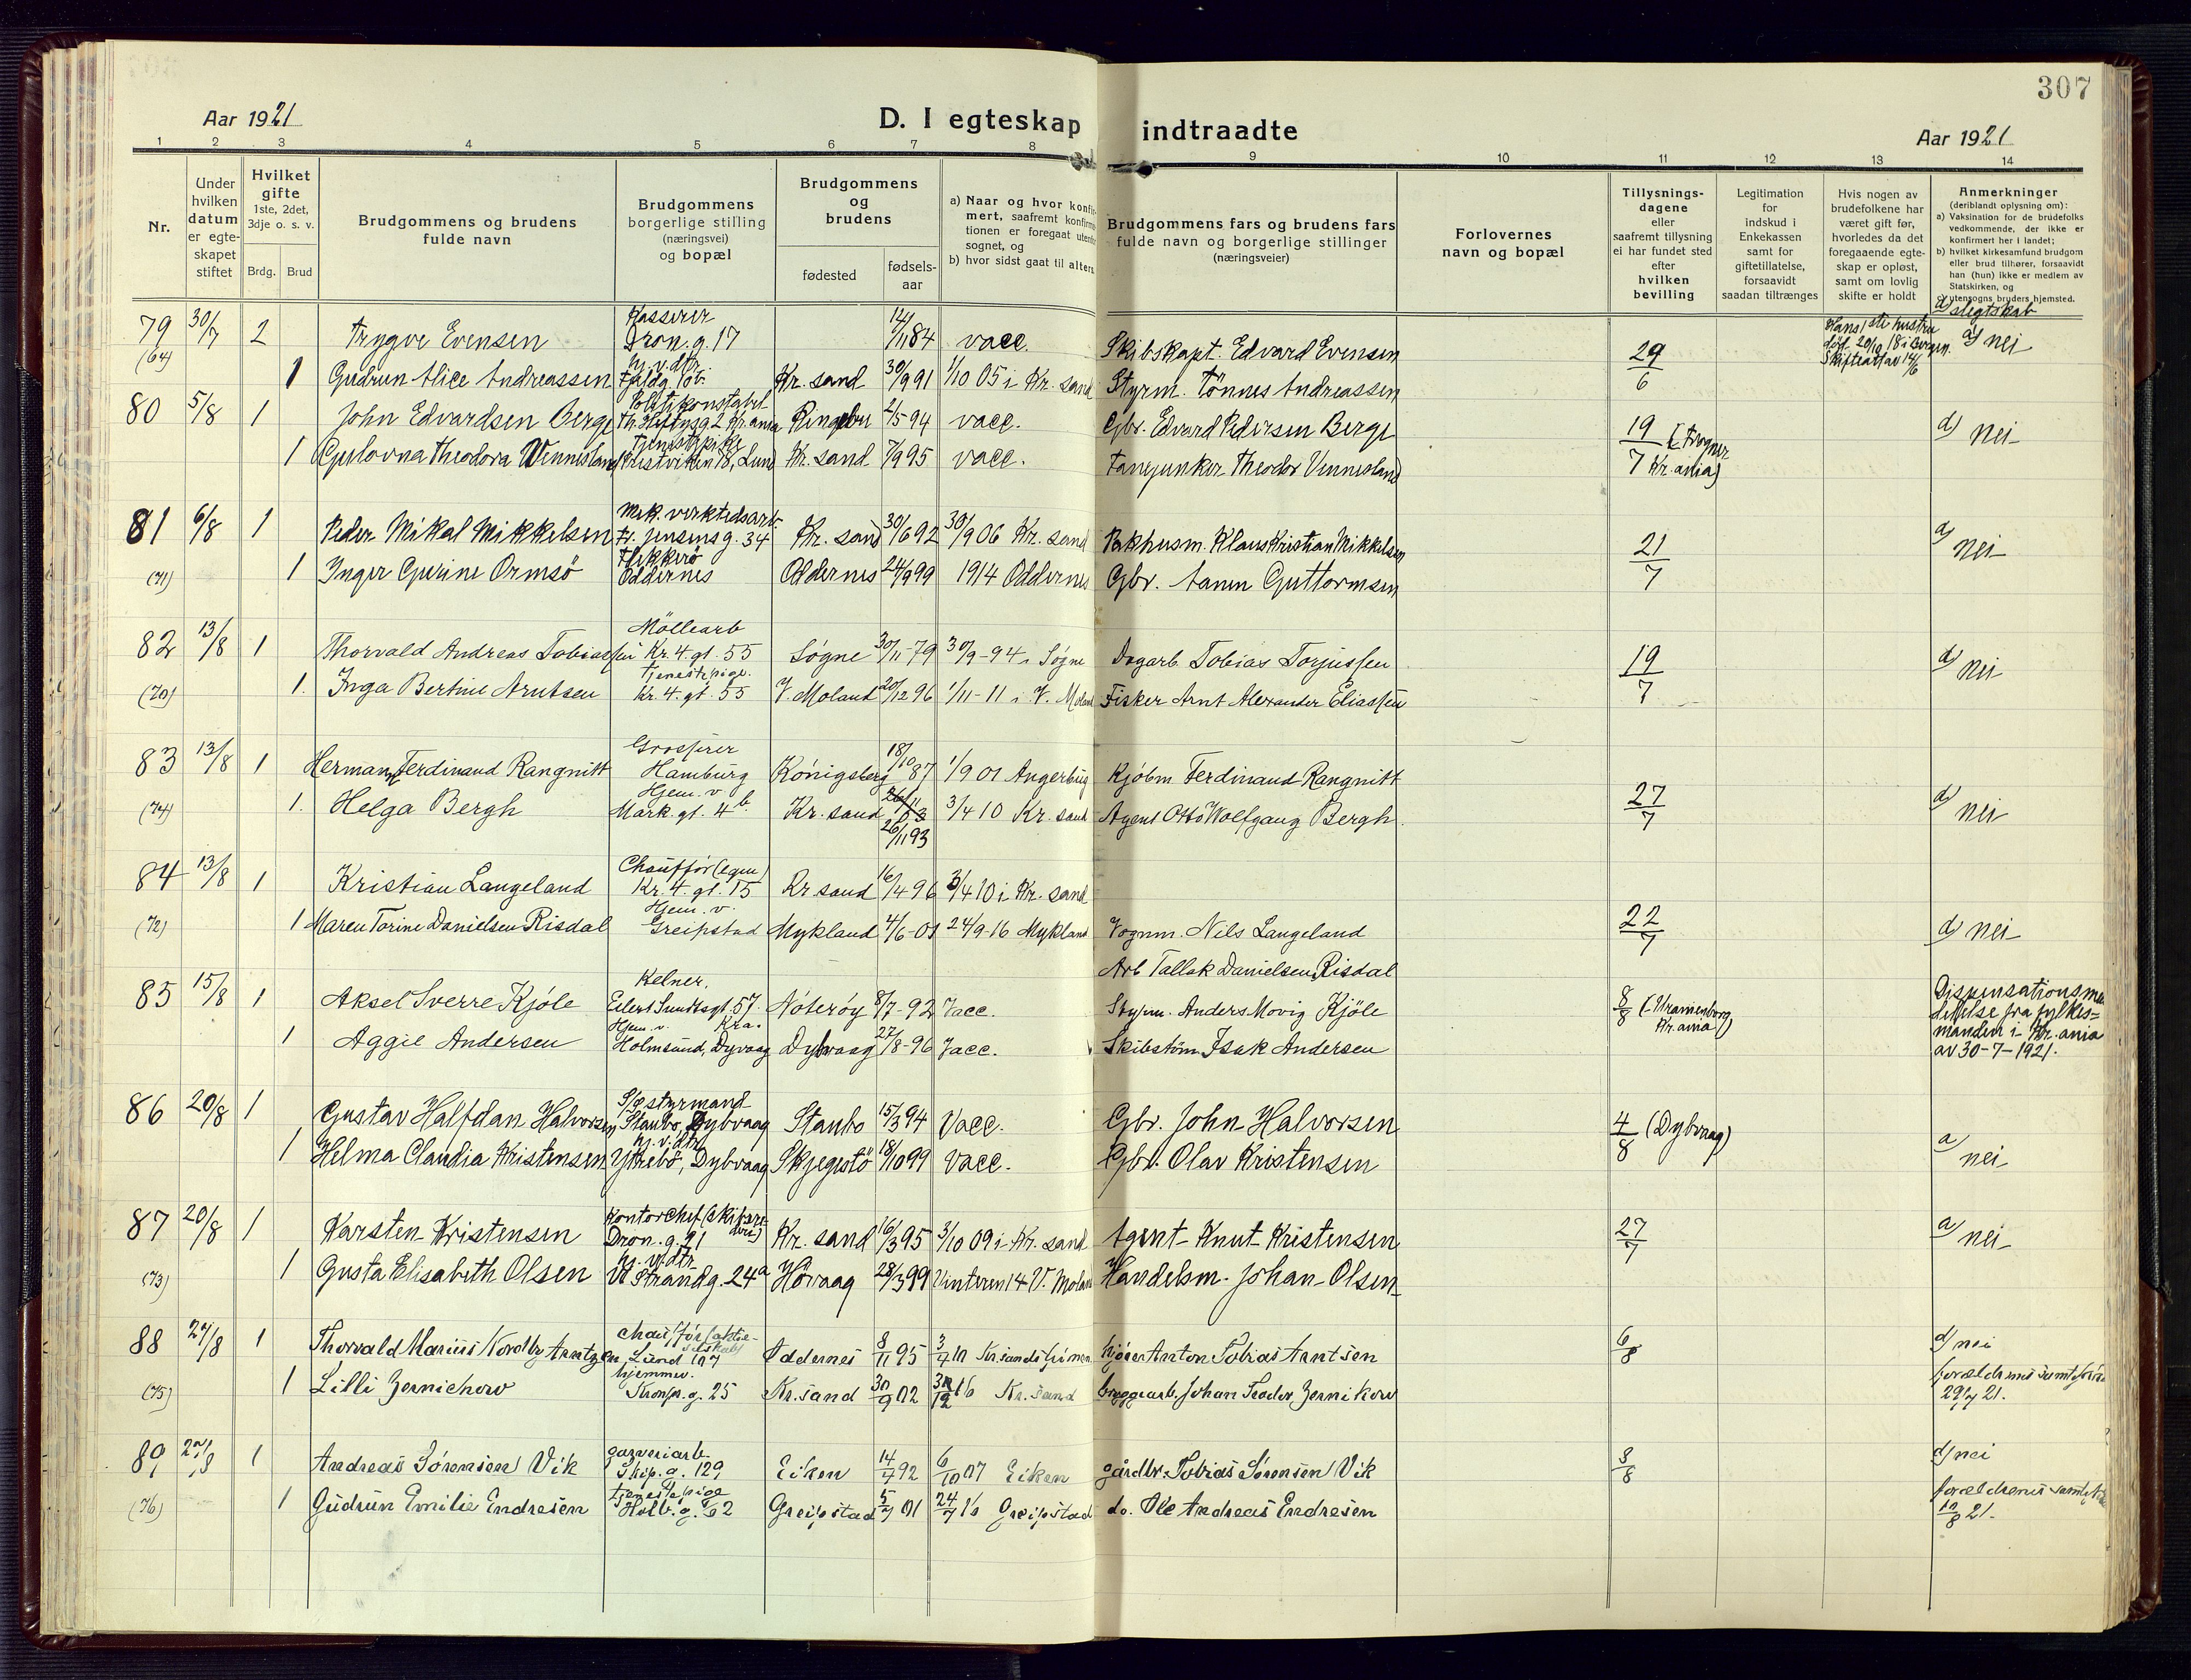 307
Aar 1921
D. I egteskap indtraadte
Aar 1921
1 2 3 4 5 6 7 8 9 10 11 12 13 14
Nr.
Under
hvilken
datum
er egte-
skapet
stiftet
Hvilket
gifte
1ste, 2det,
3dje o. s. v.
Brdg. Brud
Brudgommens og brudens
fulde navn
Brudgommens
borgerlige stilling
(næringsvei)
og bopæl
Brudgommens
og
brudens
fødested
fødsels-
aar
a) Naar og hvor konfir-
mert, saafremt konfirma-
tionen er foregaat utenfor
sognet, og
b) hvor sidst gaat til alters
Brudgommens fars og brudens fars
fulde navn og borgerlige stillinger
(næringsveier)
Forlovernes
navn og bopæl
Tillysnings-
dagene
eller
saafremt tillysning
ei har fundet sted
efter
hvilken
bevilling
Legitimation
for
indskud i
Enkekassen
samt for
giftetillatelse,
forsaavidt
saadan tiltrænges
Hvis nogen av
brudefolkene har
været gift før,
hvorledes da det
foregaaende egte-
skap er opløst,
samt om lovlig
skifte er holdt
Anmerkninger
(deriblandt oplysning om):
a) Vaksination for de brudefolks
vedkommende, der ikke er
konfirmert her i landet;
b) hvilket kirkesamfund brudgom
eller brud tilhører, forsaavidt
han (hun) ikke er medlem av
Statskirken, og
c) utensogns bruders hjemsted.
d) slegtskab
Kasserer
79 30/7 2 Trygve Evensen Dron. g. 17 14/11 84 vacc. Skibskapt. Edvard Evensen 29/6 Hans 1ste hustru død 20/10 18 i Bergen. d) nei
hj. v. dtr.
(64) 1 Gudrun Alice Andreassen Kr. sand 30/9 91 1/10 05 i Kr. sand Styrm. Tønnes Andreassen
Politikonstabel
80 5/8 1 John Edvardsen Berge Th. Heftysg 2 Kr.ania Ringebu 2/5 94 vacc. Gbr. Edvard Pedersen Berge 19/7 (Frogner Kr. ania) d) nei
Tjenestepike
1 Gulovna Theodora Vennesland Kristviken 18, Lund Kr. sand 7/9 95 vacc. Fanejunker Theodor Vennesland
Mek. verkstedsarb.
81 6/8 1 Peder Mikal Mikkelsen Fr. Jensensg. 34 Kr. sand 30/6 92 30/9 06 Kr. sand Pakhusm. Klaus Kristian Mikkelsen 21/7 d) nei
Flekkerö
(71) 1 Inger Gurine Ormsö Oddernes Oddernes 24/9 99 1914 Oddernes Gbr. Aanen Guttormsen
Möllearb
82 13/8 1 Thorvald Andreas Tobiassen Kr. 4. gt. 55 Søgne 30/11-79 30/9-94 i Søgne Dagarb Tobias Torjussen 19/7 d) nei
Tjenestepige.
(70) 1. Inga Bertine Arntsen Kr. 4. gt. 55 V. Moland 20/12 96 1/11-11 i V. Moland Fisker Arnt Alexander Eliassen
Grosserer
83 13/8 1 Hermann Ferdinand Rangnitt Hamburg Königsberg 18/10 87 1/9 01 Angerburg Kjöbm Ferdinand Rangnitt 27/7 d) nei
Hjem. v
(74) 1. Helga Bergh Mark. gt. 4b. Kr. sand 26/11 93 3/4 10 Kr. sand Agent Otto Wolfgang Bergh.
Chauffør (egen)
84 13/8 1 Kristian Langeland Kr. 4. gt. 15 Kr sand 16/4 96 3/4 10 i Kr. sand Vognm. Nils Langeland 22/7 d) nei
Hjem. v.
(72) 1 Maren Torine Danielsen Risdal Greipstad Mykland 4/6-01 24/9-16 Mykland Arb Tallak Danielsen Risdal
Kelner.
85 15/8 1 Aksel Sverre Kjöle Eilert Sundtsgt. 57. Kra. Nöteröy 8/7-92 Vacc. Styrm. Anders Movig Kjöle 8/8 (Uranienborg Kr. ania) Dispensationsmeddelelse fra fylkes=
manden i Kr. ania
av 30-7-1921.
Hjem. v.
1 Aggie Andersen Holmsund, Dyvaag Dybvaag 27/8-96 Vacc. Skibstöm. Isak Andersen
S/s styrmand
86 20/8 1 Gustav Halfdan Halvorsen Staubo, Dybvaag Staubo 15/3 94 Vacc. Gbr. John Halvorsen 4/8 (Dybvaag) a nei
hj. v. dtr
1 Helma Claudia Kristensen Ytrebö, Dybvaag Skjegestö 18/10 99 Vacc. Gbr. Olav Kristensen
Kontorchef (skibsrederi)
87 20/8 1 Karsten Kristensen Dron. g. 21 Kr. sand 16/3 95 3/10 09 i Kr. sand Agent Knut Kristensen 27/7 a) nei
hj. v. dtr
(73) 1 Gusta Elisabeth Olsen V. Strandg. 24a Hövaag 28/3 99 Vinteren 14 V. Moland Handelsm. Johan Olsen
Chauffør (aktieselskab)
88 27/8 1 Thorvald Marius Nordby Arntzen Lund 107 Oddernes 8/11 95 3/4 10 Kr.sands hjører Anton Tobias Arntsen 6/8 d) nei
hjemmev.
(75) 1 Lilli Zernichow Kronpr. g. 25 Kr. sand 30/9 02 Kr. sand bryggearb. Johan Teodor Zernikow forældrenes samtykke
29/7 21.
gasverkarb.
89 27/8 1 Andreas Sörensen Vik Skip. g. 129 Eiken 14/7 92 6/10 07 Eiken gårdbr. Tobias Sörensen Vik 8/8 d) nei
tjenestepige
(76) 1 Gudrun Emilie Endresen Holb. g. 62 Greipstad 5/7 01 24/7 16 Greipstad do. Ole Andreas Endresen forældrenes samtykke
10/8 21.